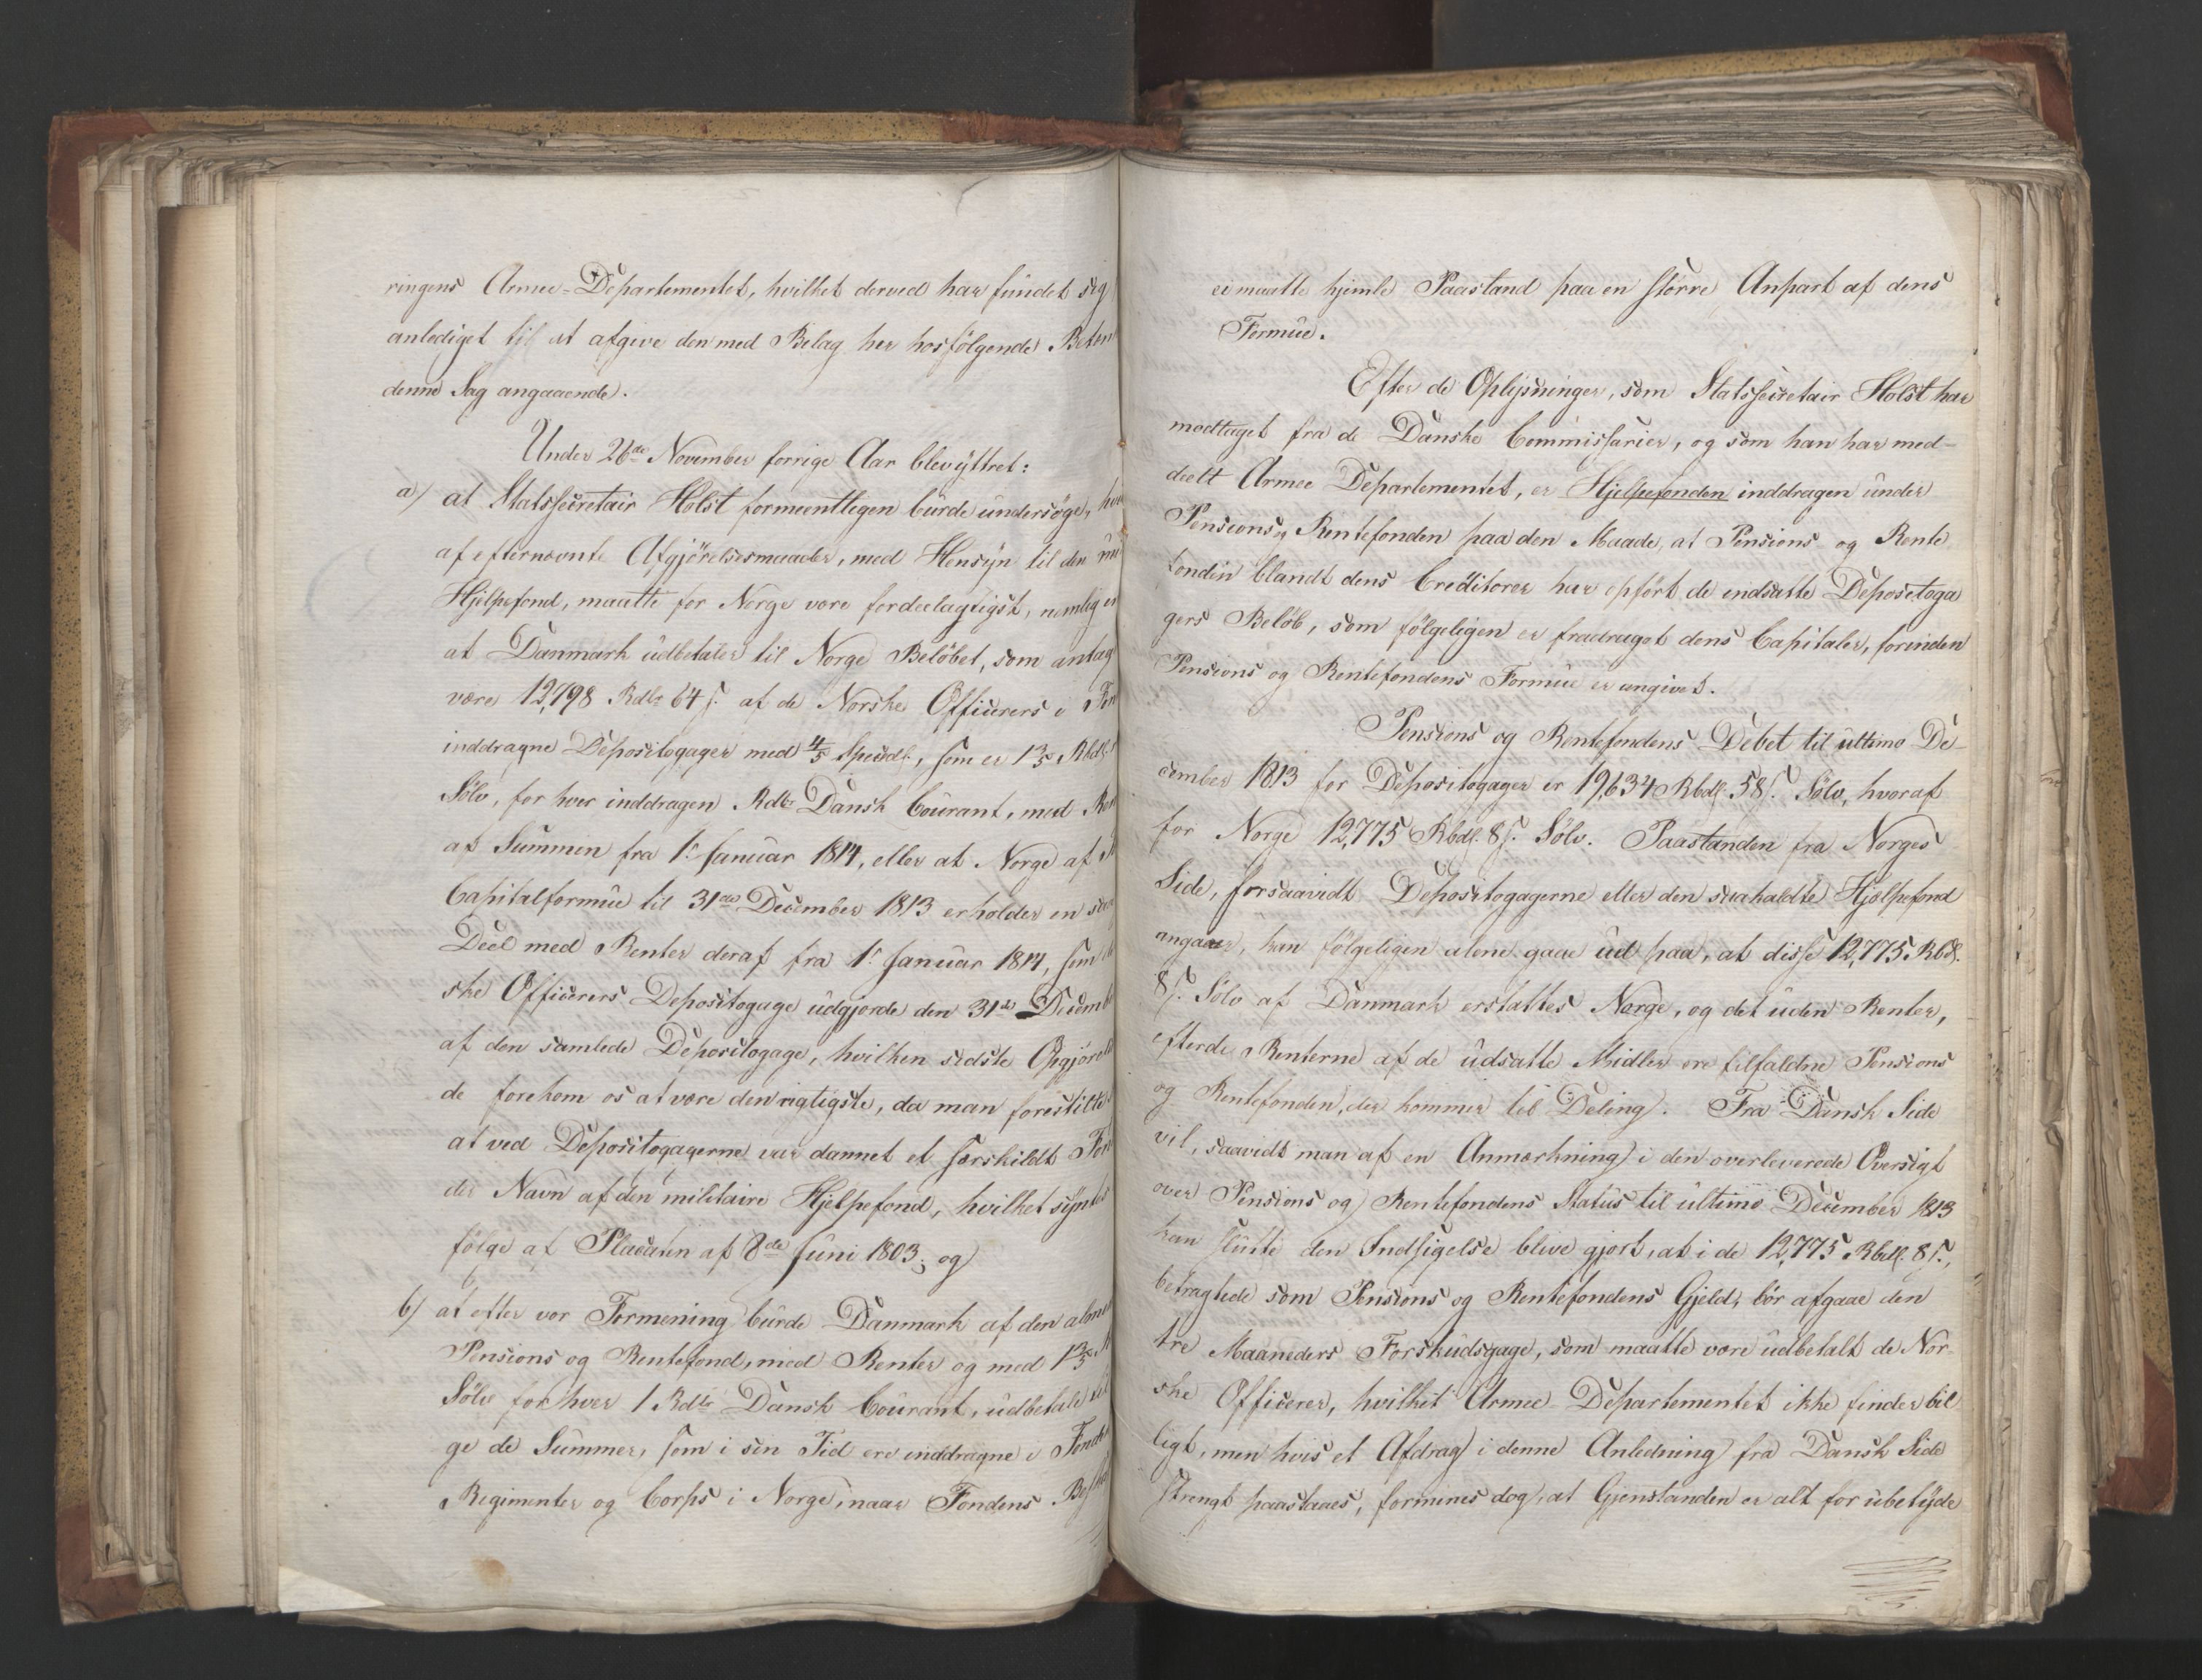 ringens Armee-Departementet, hvilket derved har fundet sig
anlediget til at afgive den med Belag her hosfølgende Beten
denne Sag angaaende.
Under 26de November forrige Aar blev yttret:
a) at Statssecretair Holst formeentligen burde undersøge, hvo
af efternævnte Afgjørelsesmaader, med Hensyn til den
Hjelpefond, maatte for Norge være fordeelagtigst, nemlig en
at Danmark udbetaler til Norge Beløbet, som antag
være 12,798 Rdlr 64 s. af de Norske Officerers i Fon
inddragne Depositogager med 4/5 Speciedl., som er 1 3/5 Rbdl.
Sølv, for hver inddragen Rdlr Dansk Courant, med Ren
af Summen fra 1. Januar 1814, eller at Norge af
Capitalformue til 31de December 1813 erholder en saa
Deel med Renter deraf fra 1. Januar 1814, som
ske Officerers Depositogage udgjorde den 31de Decemb
af den samlede Depositogage, hvilken sidste Opgjørel
de forekom os at være den rigtigste, da man forestillte
at ved Depositogagerne var dannet et særskildt Fon
der Navn af den militaire Hjelpefond, hvilket syntes
følge af Placaten af 8de Juni 1803; og
b) at efter vor Formening burde Danmark af den alme
Pensions og Rentefond, med Renter og med 1 3/5
Sølv for hver 1 Rdlr Dansk Courant, udbetale til
ge de Summer, som i sin Tid ere inddragne i Fonde
Regimenter og Corps i Norge, naar Fondens
ei maatte hjemle Paastand paa en større Anpart af dens
Formue.
Efter de Oplysninger, som Statssecretair Holst har
modtaget fra de Danske Commissarier, og som han har med-
deelt Armee Departementet, er Hjelpefonden inddragen under
Pensions og Rentefonden paa den Maade, at Pensions og Rente
fonden blandt dens Creditorer har opført de indsatte Depositoga
gers Beløb, som følgeligen er fradraget dens Capitaler, forinden
Pensions og Rentefondens Formue er angivet.
Pensions og Rentefondens Debet til ultimo De-
cember 1813 for Depositogager er 19,634 Rbdl. 58 s. Sølv, hvoraf
for Norge 12,775 Rbdl. 8 s. Sølv. Paastanden fra Norges
Side, forsaavidt Depositogagerne eller den saakaldte Hjelpefond
angaaer, kan følgeligen alene gaae ud paa, at disse 12,775 Rbdl.
8 s. Sølv af Danmark erstattes Norge, og det uden Renter,
efterdi Renterne af de udsatte Midler ere tilfaldne Pensions
og Rentefonden, der kommer til Deling. Fra Dansk Side
vil, saavidt man af en Anmærkning i den overleverede Oversigt
over Pensions og Rentefondens Status til ultimo December 1813
kan slutte den Indsigelse blive gjort, at i de 12,775 Rbdl. 8 s.,
betragtede som Pensions og Rentefondens Gjeld, bør afgaae den
tre Maaneders Forskudsgage, som maatte være udbetalt de Nor-
ske Officerer, hvilket Armee-Departementet ikke finder bil
ligt, men hvis et Afdrag i denne Anledning fra Dansk Side
strengt paastaaes, formenes dog, at Gjenstanden er alt for ubetyde